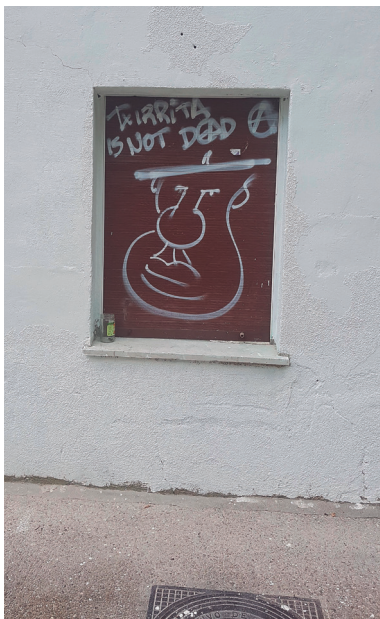 TXIRRITA
IS NOT DEAD